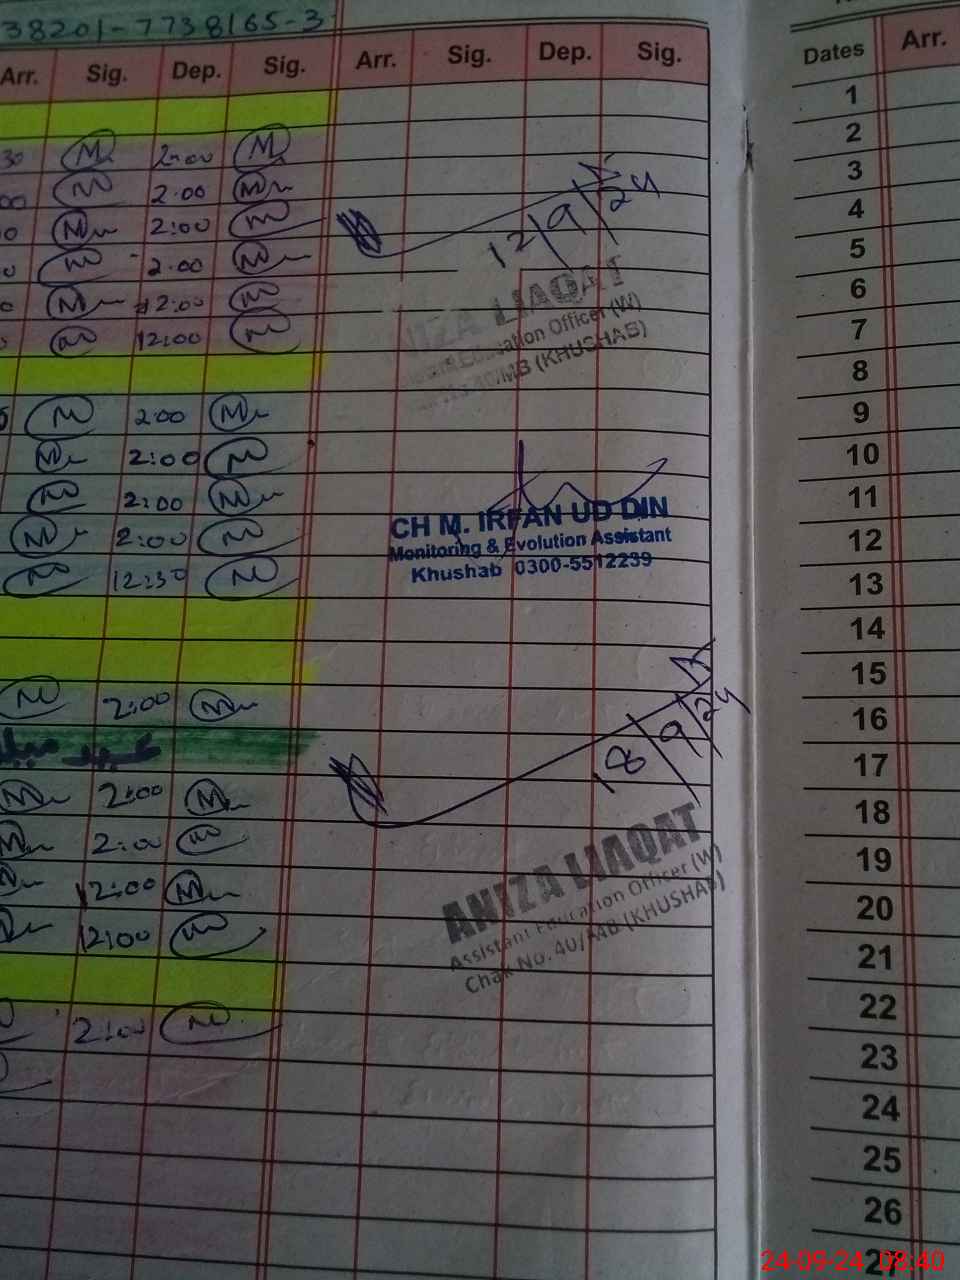 38201-7738165-3
Arr. Sig. Dep. Sig. Arr. Sig. Dep. Sig.
30 2:00
00 2:00
2:00
2:00
2:00
12:00
2:00
2:00
2:00
2:00
12:30
2:00
عید میلاد
2:00
2:00
12:00
12:00
2:00
12/9/24
ANIZA LIAQAT
Education Officer (W)
40/MB (KHUSHAB)
CH M. IRFAN UD DIN
Monitoring & Evolution Assistant
Khushab 0300-5512239
18/9/24
ANIZA LIAQAT
Assistant Education Officer (W)
Chak No. 40/MB (KHUSHAB)
Dates Arr.
1
2
3
4
5
6
7
8
9
10
11
12
13
14
15
16
17
18
19
20
21
22
23
24
25
26
27
24-09-24 08:40